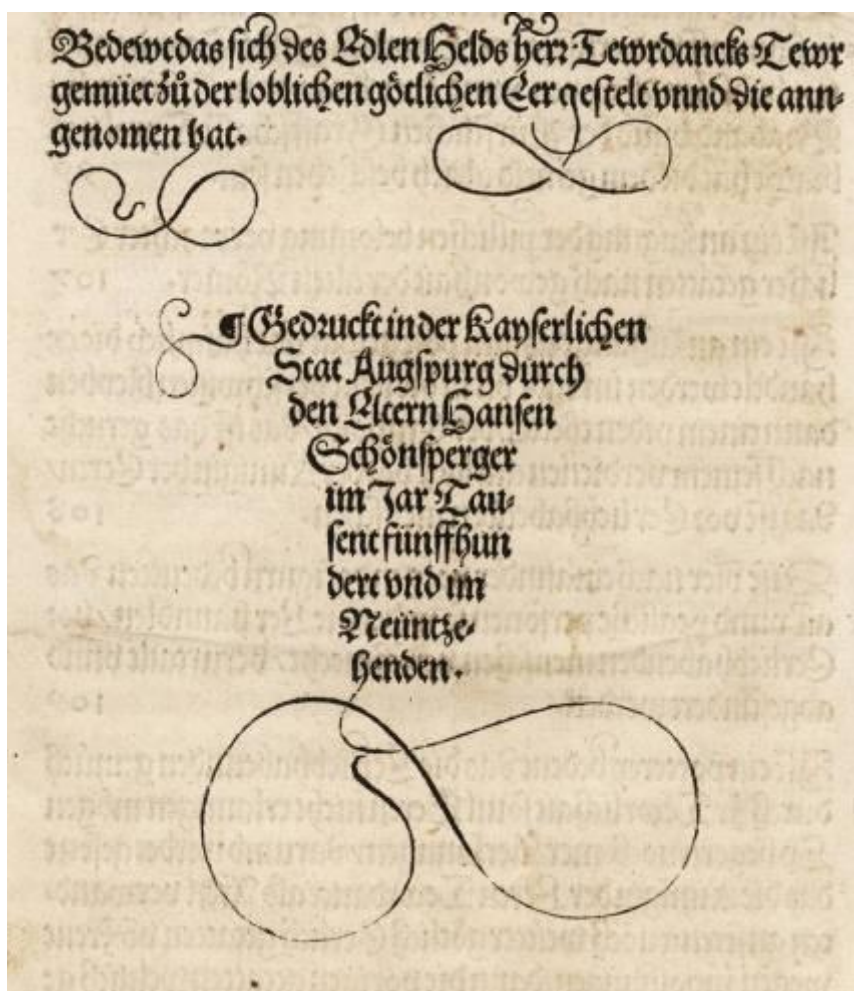 Bedewt das sich des Edlen Helds herr Tewrdancks Tewr
gemüet zů der loblichen götlichen Eer gestelt vnnd die ann-
genomen hat.
¶ Gedruckt in der Kayserlichen
Stat Augspurg durch
den Eltern Hansen
Schönsperger
im Jar Tau-
sent fünffhun
dert vnd im
Neüntze-
henden.